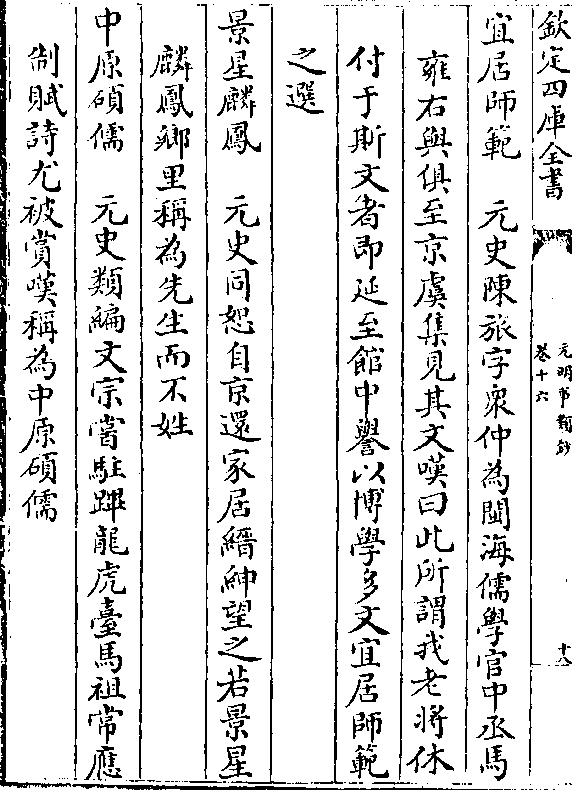 欽定四庫全書
元明事類鈔
卷十六
十六
宜居師範　元史陳旅字衆仲為閩海儒學官中丞馬
雍右與俱至京虞集見其文嘆曰此所謂我老將休
付于斯文者即延至館中譽以博學多文宜居師範
之選
景星麟鳳　元史同恕自京還家居縉紳望之若景星
麟鳳鄉里稱為先生而不姓
中原碩儒　元史類編文宗嘗駐蹕龍虎臺馬祖常應
制賦詩尤被賞嘆稱為中原碩儒